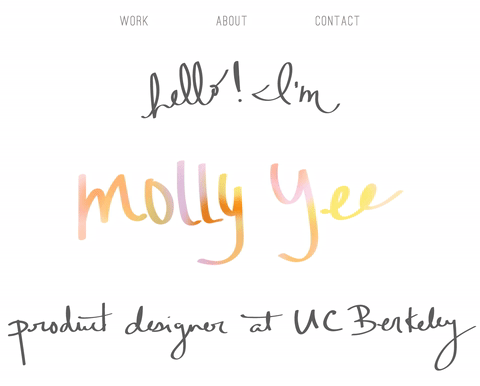 WORK ABOUT CONTACT
hello! I'm
molly yee
product designer at UC Berkeley